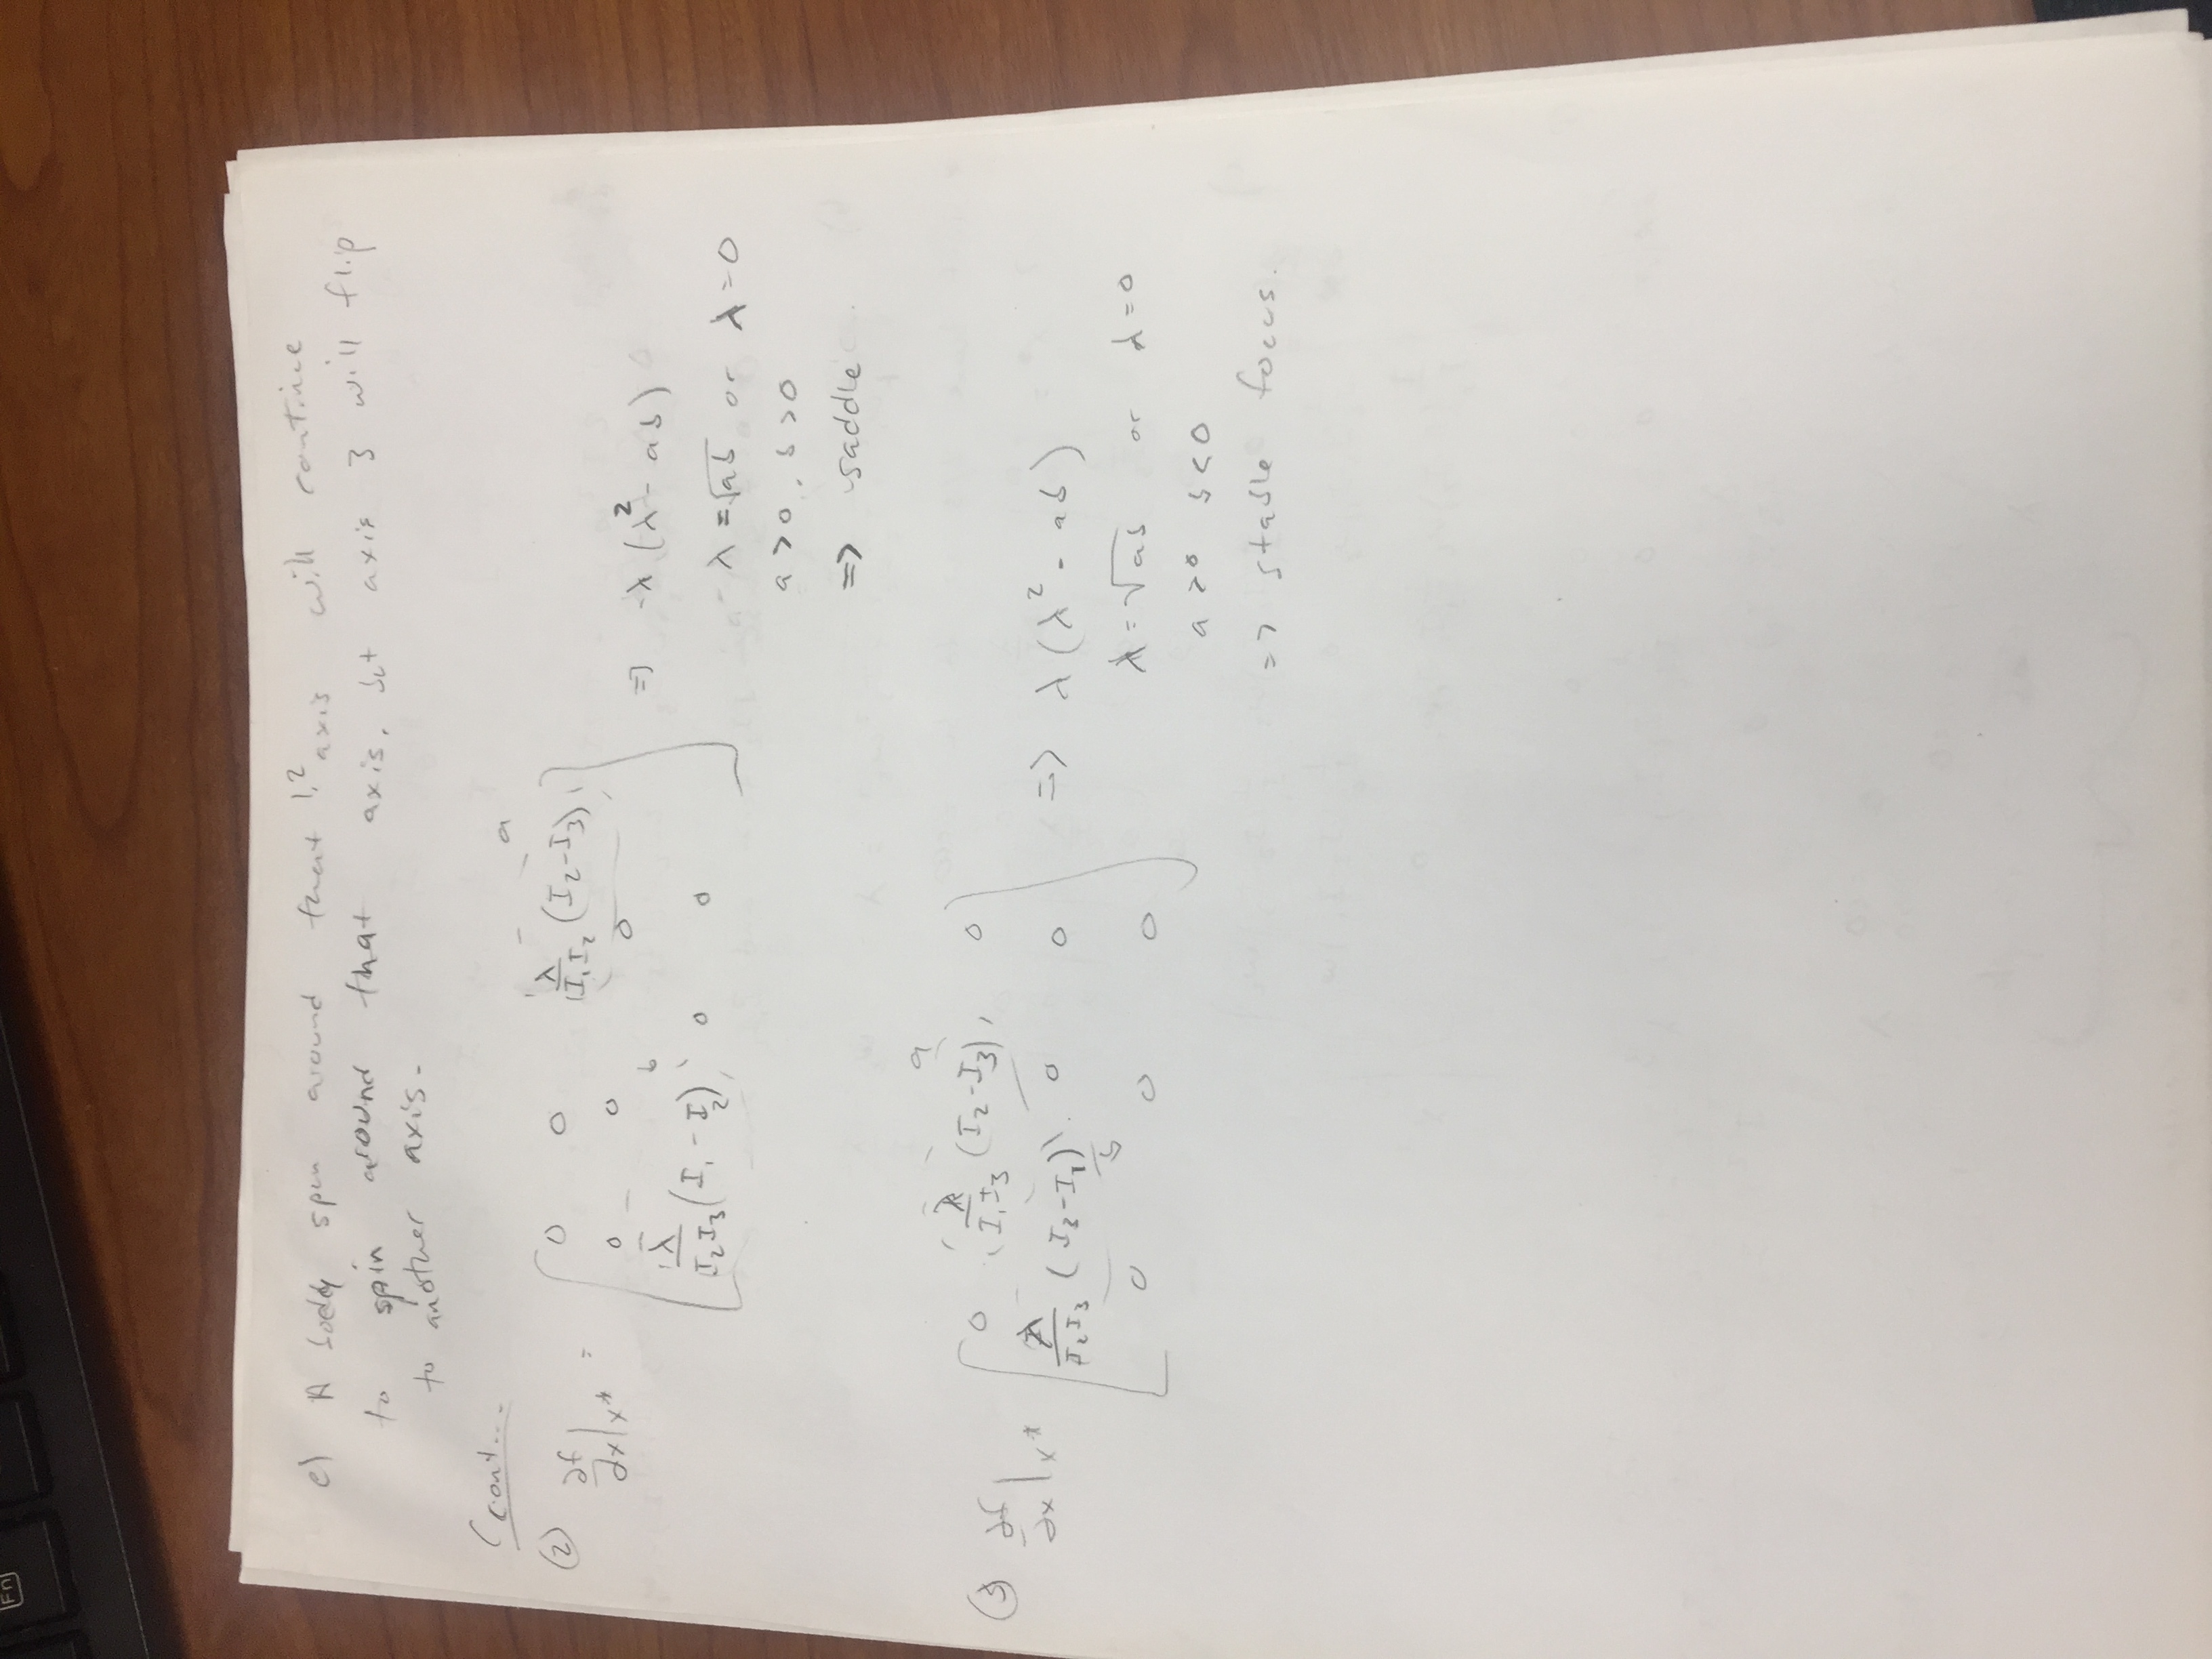 Fn
e) A body spun around that 1,2 axis will continue
to spin around that axis, but axis 3 will flip
to another axis.
(cont...
② ∂f/∂x|x* = [ 0 0 λ/(I₁I₂) (I₂-I₃) a
0 0 0
λ/(I₂I₃) (I₁-I₂) b 0 0 ]
=> -λ(λ² - ab)
λ = √ab or λ = 0
a > 0, b > 0
=> saddle
③ ∂f/∂x|x* [ 0 λ/(I₁I₃) (I₂-I₃) a 0
λ/(I₂I₃) (I₃-I₁) b 0 0
0 0 0 ]
=> λ(λ² - ab)
λ = √ab or λ = 0
a > 0 b < 0
=> stable focus.